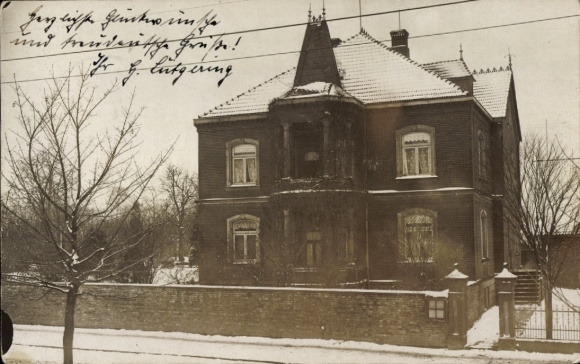 Herzlichste Glückwünsche
und treudeutsche Grüße!
Ihr G. Lütgering